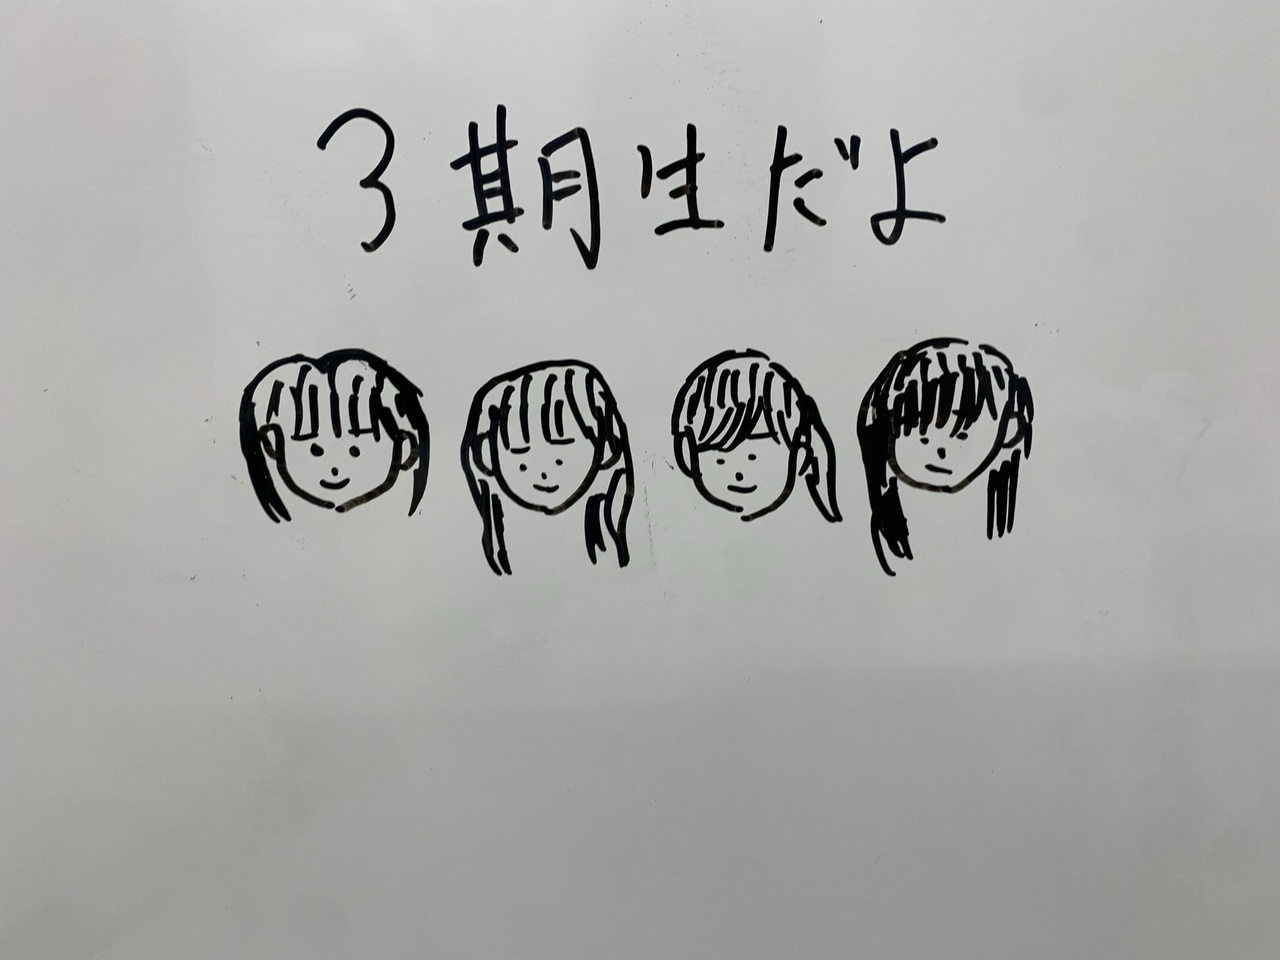 3期生だよ